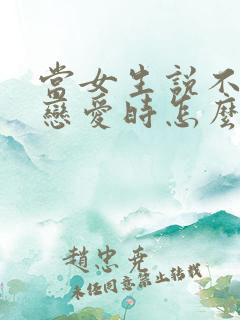 當女生說不
戀愛時怎麼
趙忠堯
未經同意禁止轉載